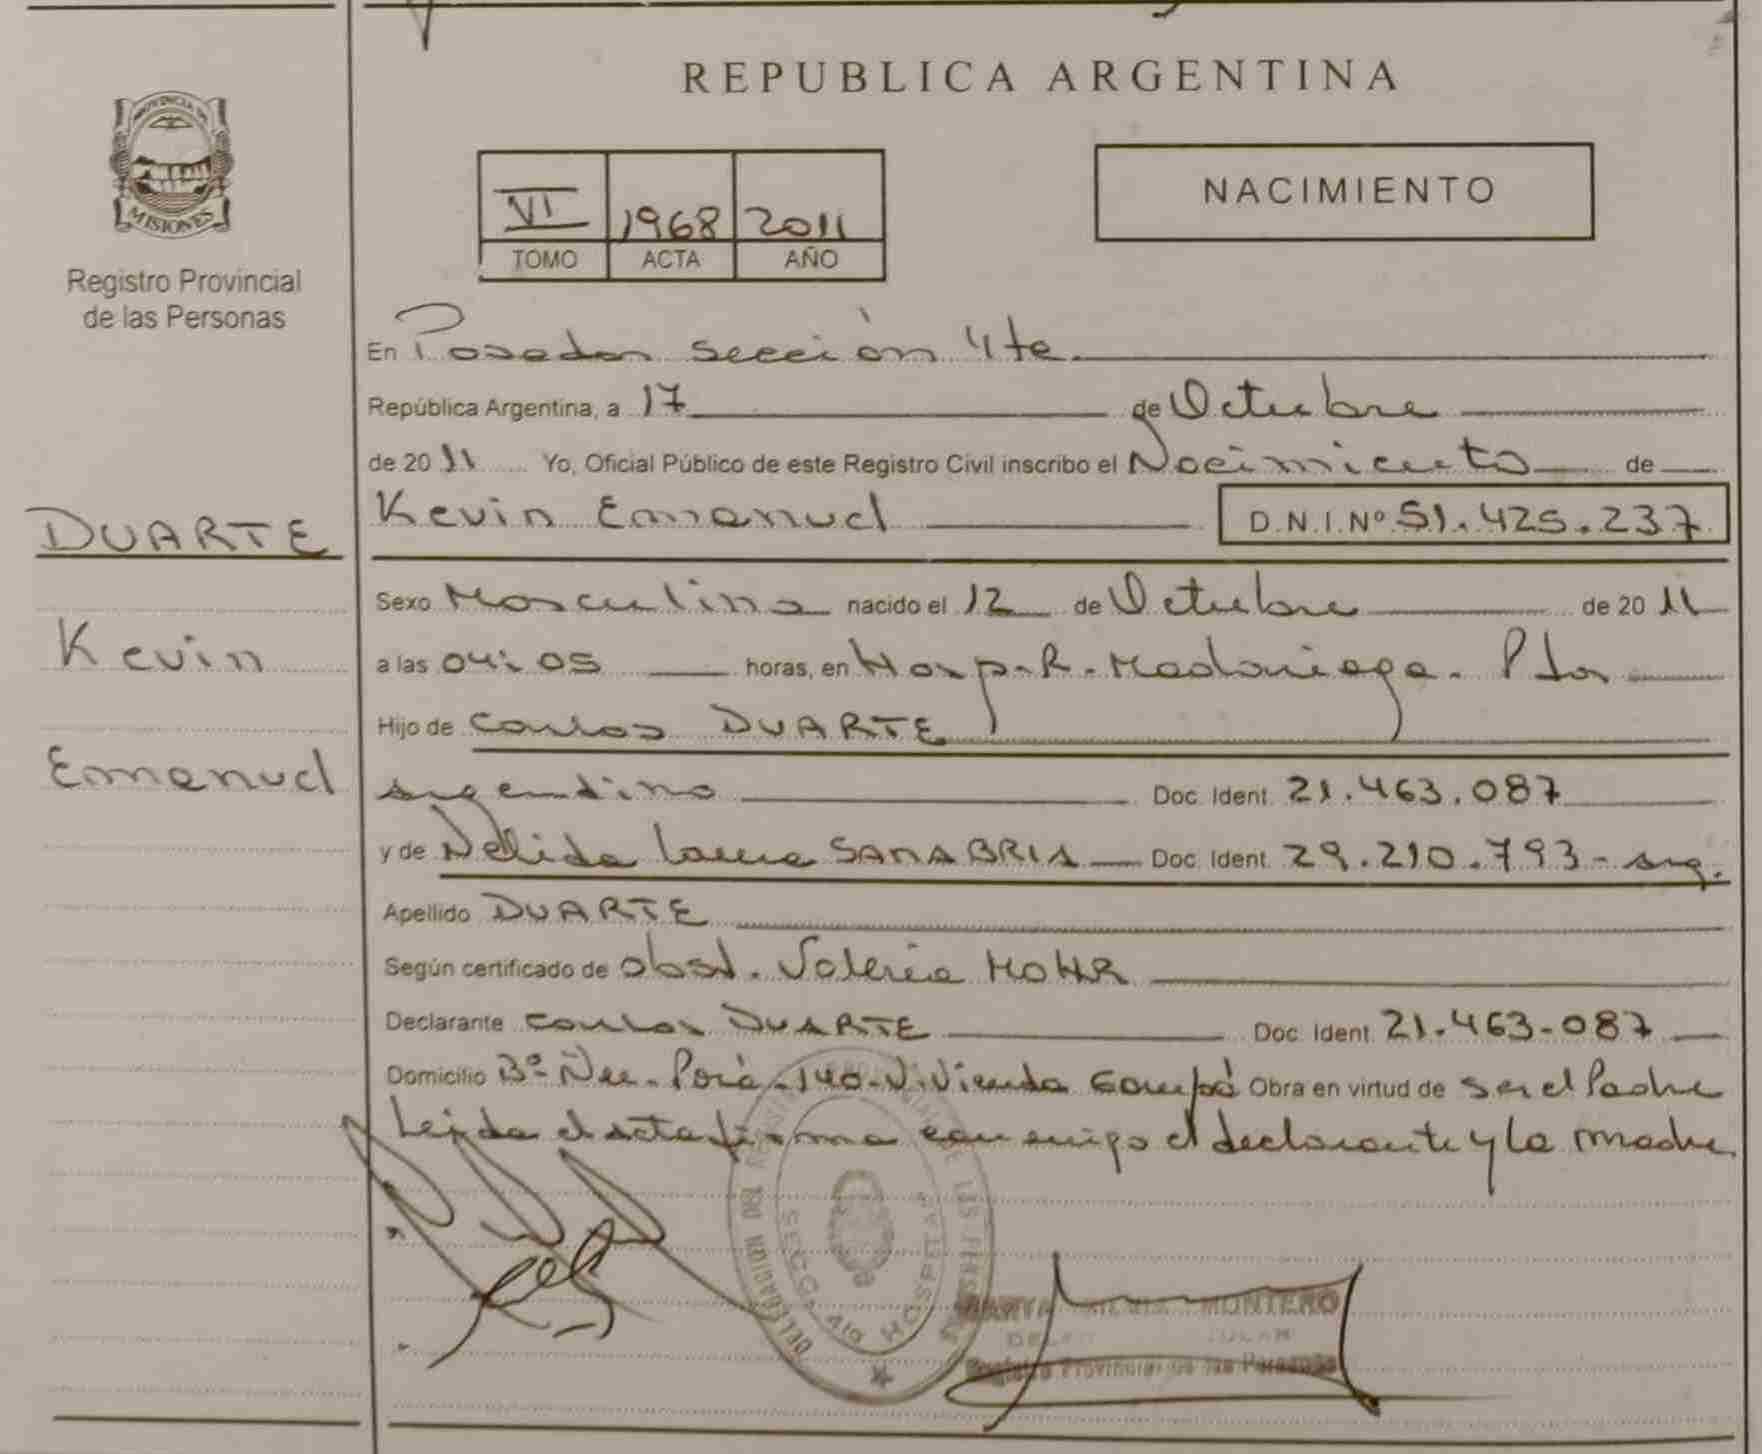 REPUBLICA ARGENTINA
PROVINCIA DE
MISIONES
Registro Provincial
de las Personas
VI 1968 2011
TOMO ACTA AÑO
NACIMIENTO
En Posadas sección 4ta.
República Argentina, a 17 de Octubre
de 2011 Yo, Oficial Público de este Registro Civil inscribo el Nacimiento de
Kevin Emanuel D.N.I.Nº 51.425.237
DUARTE
Kevin
Emanuel
Sexo Masculino nacido el 12 de Octubre de 2011
a las 04:05 horas, en Hosp. R. Madariaga. Pdas
Hijo de Carlos DUARTE
argentino Doc. Ident. 21.463.087
y de Nelida SANABRIA Doc. Ident. 29.210.793 - arg.
Apellido DUARTE
Según certificado de obst. Valeria MOHR
Declarante Carlos DUARTE Doc. Ident. 21.463.087
Domicilio Bº Ñu Porá - 140 - Vivienda Obra en virtud de ser el Padre
Leida el acta firma conmigo el declarante y la madre
DELEGACION DEL REGISTRO DE LAS PERSONAS
SECC. 4ta HOSPITAL
MONTERO
Registro Provincial de las Personas